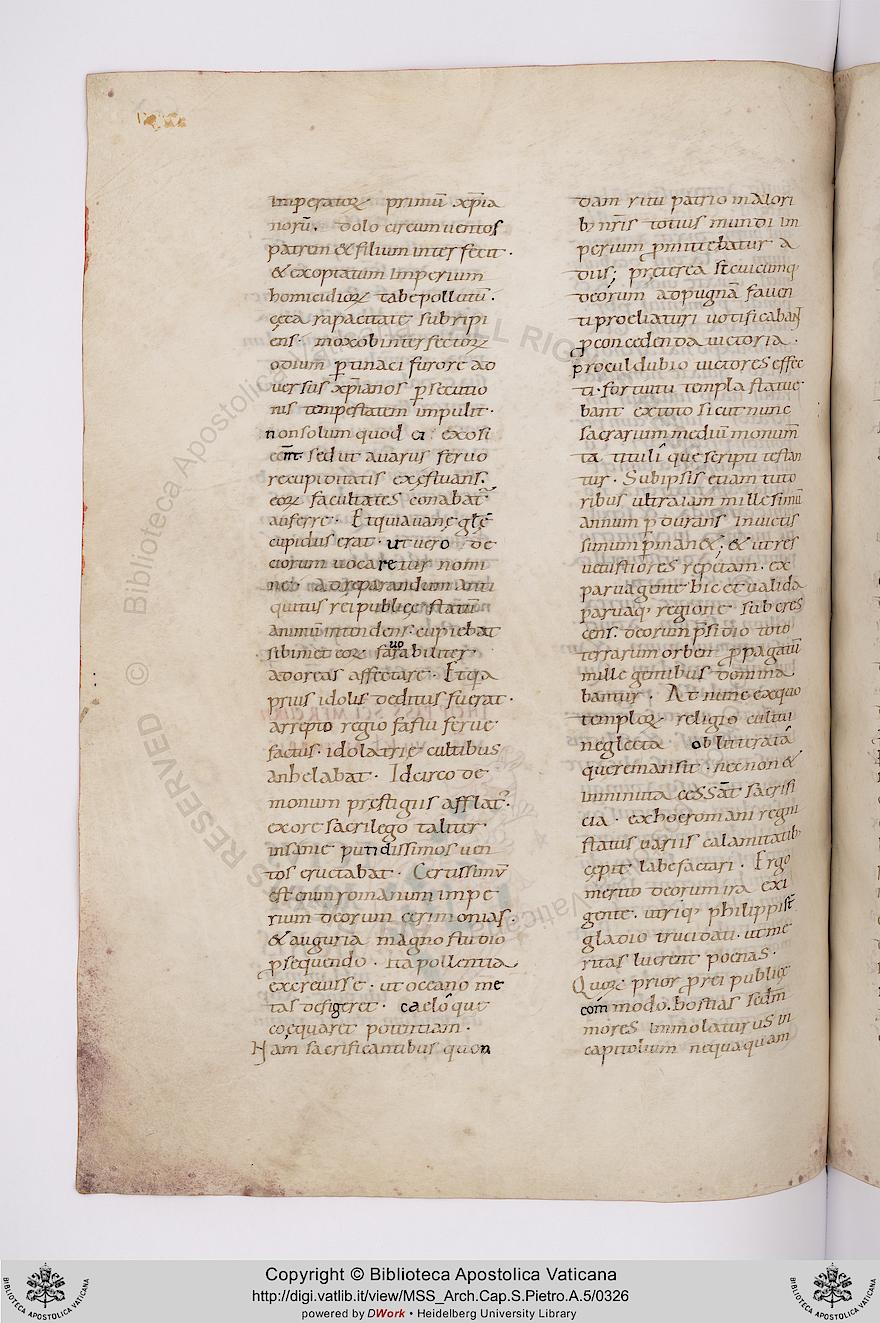 imperatorꝝ primū xp̄ia
norū. dolo circumuentos
patrem & filium interfecit.
& exoptatum imperium
homicidioꝝ tabe pollutū.
ceca rapacitate subripi
ens. mox ob interfectorꝝ
odium ꝑtinaci furore ad
uersus xp̄ianos ꝑsecutio
nis tempestatem impulit.
non solum quod ei exosi
eēnt sed ut auarus seruo
re cupiditatis exęstuans.
eoꝝ facultates conabat᷑
auferre. Et quia uanę glę
cupidus erat. ut uero de
ciorum uocaretur nomi
ne. ad reparandum anti
quitus rei publicę statū
animū intendens. cupiebat
sibimet eoꝝ fauorabiliter
adoreas affectare. Et q̄a
prius idolis deditus fuerat.
arrepto regio fastu ferue
factus. idolatrie cultibus
anhelabat. Idcirco de
monum pręstigiis afflat᷑.
ex ore sacrilego taliter
insanie putidissimos uen
tos eructabat. Certissimū
est enim romanum impe
rium deorum cerimonias.
& auguria magno studio
ꝑsequendo. ita pollentia
excreuisse. ut oceano me
tas defigeret. caeloque
coęquaret potentiam.
Nam sacrificantibus quon
dam ritu patrio maiori
bꝰ nr̄is totius mundi im
perium ꝓmittebatur a
diis; pręterea si cuicumqꝫ
deorum ad pugnā fauen
ti proeliaturi uotificabant
ꝓ concedenda uictoria.
procul dubio uictores effec
ti. fortuitu templa statue
bant ex uoto sicut nunc
sacrarium mediū monum̄
ta titulique scripti testan
tur. Sub ipsis etiam tuto
ribus ultra iam millesimū
annum ꝑdurans inuictis
simum ꝑman&; & ut res
uetustiores repetam. ex
parua gente hic et ualida
paruaqꝫ regione sub cres
cens. deorum p̄sidio toto
terrarum orbe ꝓpagatū
mille gentibus domina
bantur. At nunc ex quo
temploꝝ religio cultui
neglecta obliterata
que remansit. nec non &
imminuta cessāt sacrifi
cia. ex hoc romani regni
status uariis calamitatibꝰ
cepit labefactari. Ergo
merito deorum ira exi
gente. utriqꝫ philippi s̄t
gladio trucidati. ut me
ritas luerent poenas.
Quorꝝ prior ꝓ rei publicę
com̄modo. hostias sedm̄
mores immolaturus in
capitolium nequaquam
Copyright © Biblioteca Apostolica Vaticana
http://digi.vatlib.it/view/MSS_Arch.Cap.S.Pietro.A.5/0326
powered by DWork • Heidelberg University Library
BIBLIOTECA APOSTOLICA VATICANA
BIBLIOTECA APOSTOLICA VATICANA